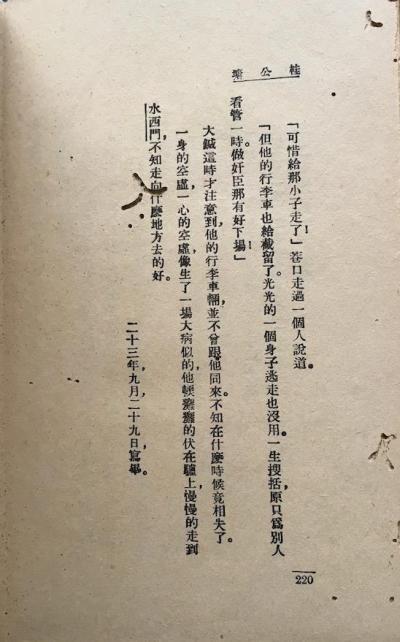 桂公塘
「可惜給那小子走了！」巷口走過一個人說道。
「但他的行李車也給截留了。光光的一個身子逃走也沒用。一生搜括，原只爲別人
看管一時。做奸臣那有好下場！」
大鋮這時才注意到他的行李車輛，並不曾跟他同來。不知在什麽時候竟相失了。
一身的空虛，一心的空虛，像生了一場大病似的，他輭癱癱的伏在驢上，慢慢的走到
水西門，不知走向什麽地方去的好。
二十三年，九月，二十九日寫畢。
220